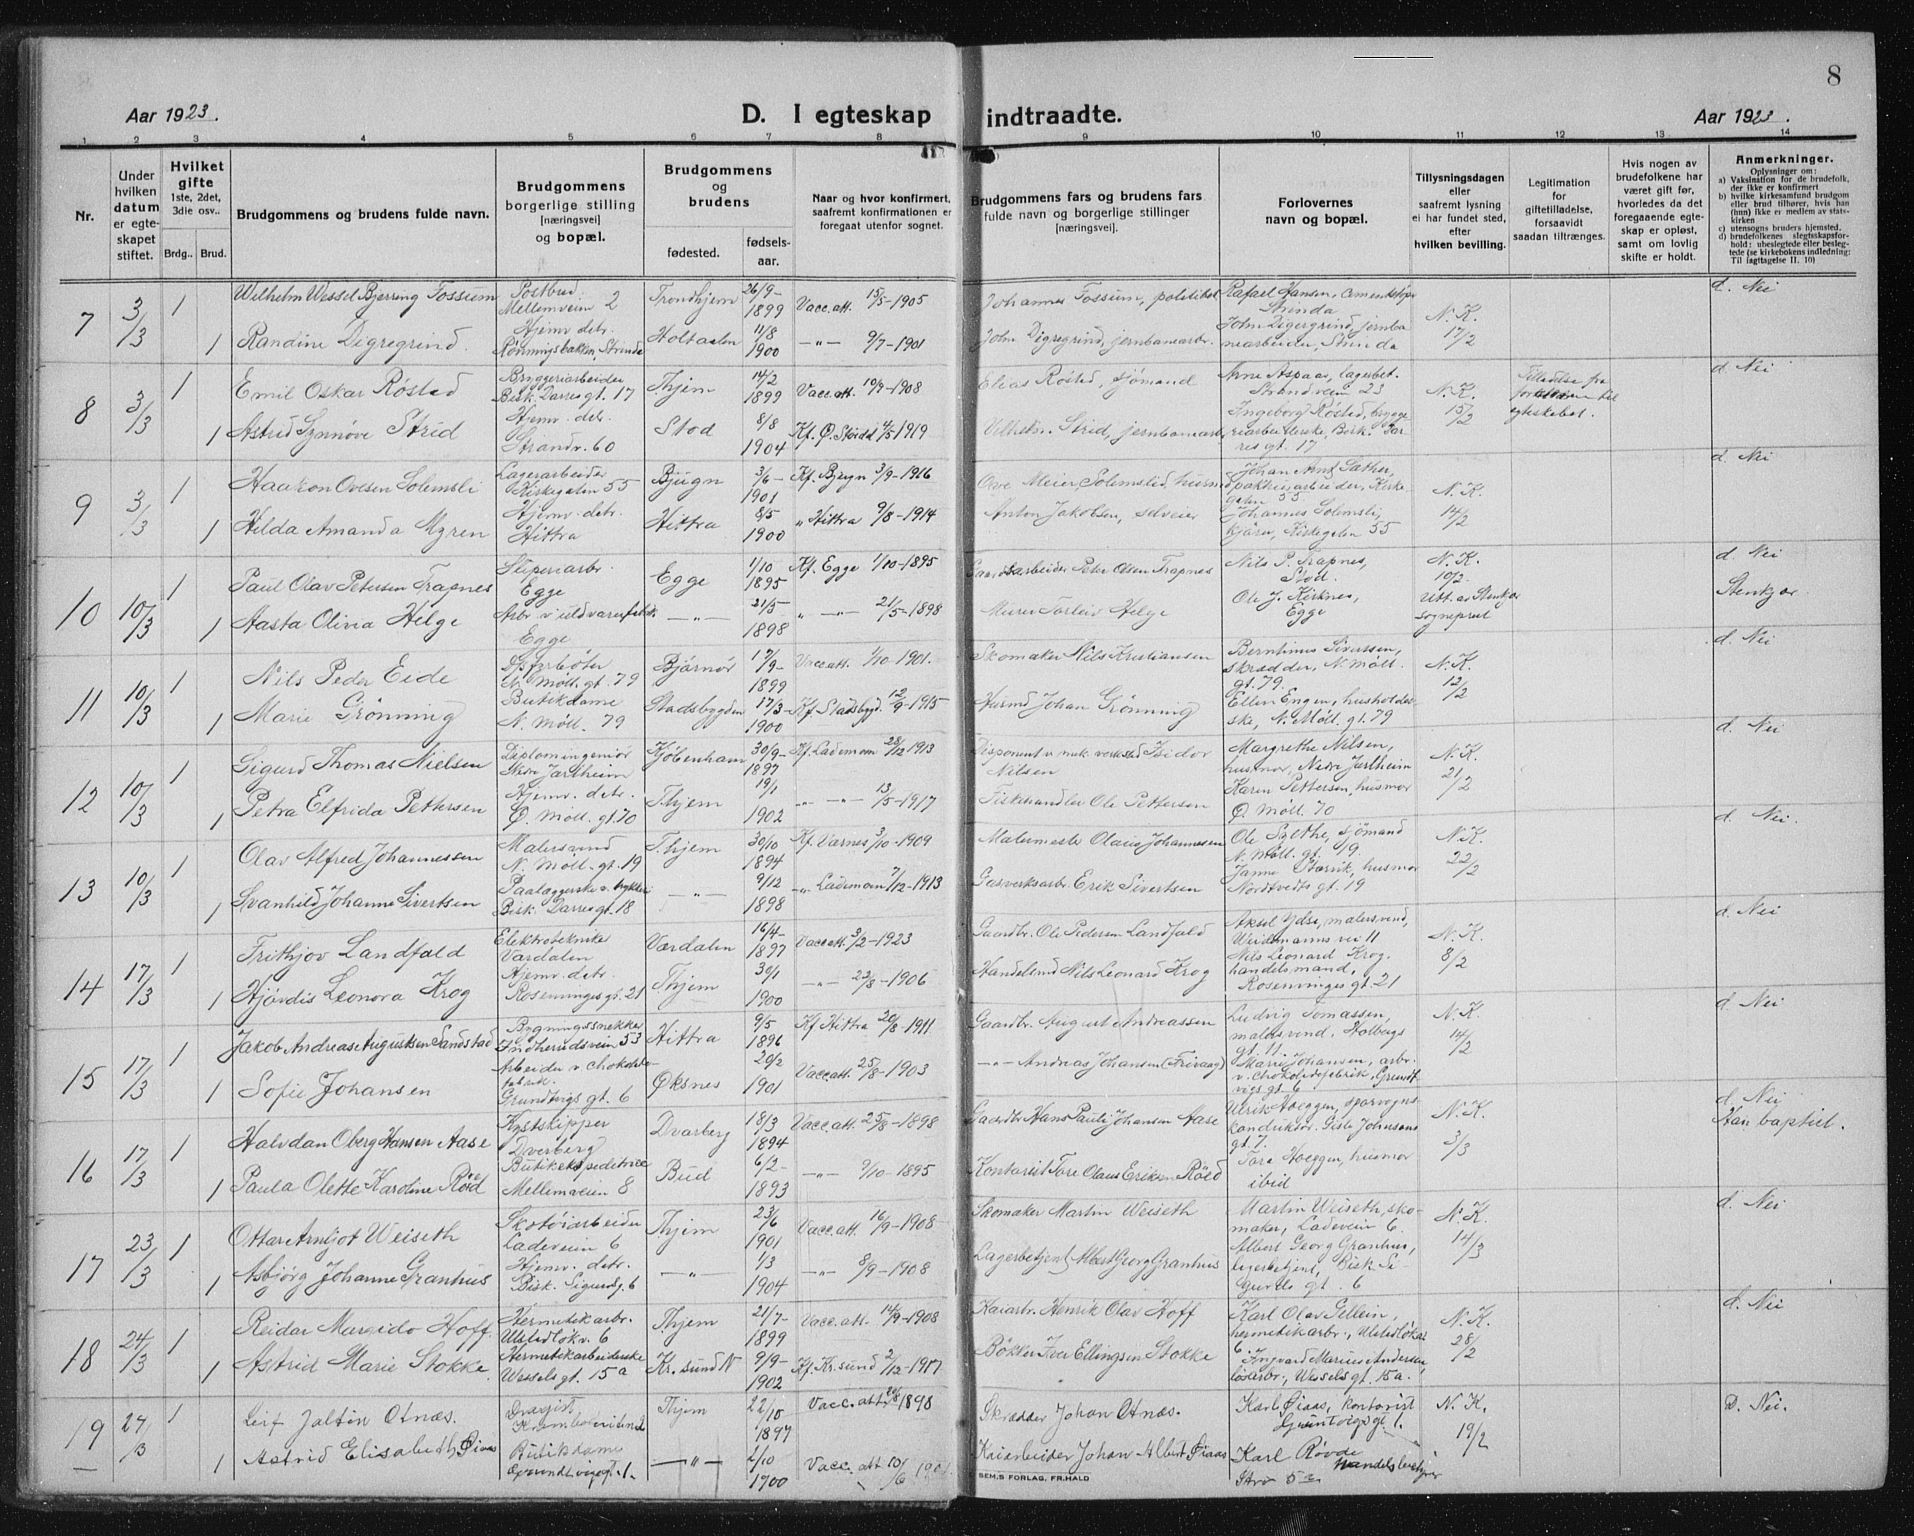 8
Aar 1923.
D. I egteskap indtraadte.
Aar 1923.
1 2 3 4 5 6 7 8 9 10 11 12 13 14
Nr.
Under hvilken datum er egteskapet stiftet.
Hvilket gifte 1ste, 2det, 3die osv..
Brdg.. Brud.
Brudgommens og brudens fulde navn.
Brudgommens borgerlige stilling [næringsvei] og bopæl.
Brudgommens og brudens
fødested.
fødselsaar.
Naar og hvor konfirmert, saafremt konfirmationen er foregaat utenfor sognet.
Brudgommens fars og brudens fars fulde navn og borgerlige stillinger [næringsvei].
Forlovernes navn og bopæl.
Tillysningsdagen eller saafremt lysning ei har fundet sted, efter hvilken bevilling.
Legitimation for giftetilladelse, forsaavidt saadan tiltrænges.
Hvis nogen av brudefolkene har været gift før, hvorledes da det foregaaende egteskap er opløst, samt om lovlig skifte er holdt.
Anmerkninger.
Oplysninger om:
a) Vaksination for de brudefolk, der ikke er konfirmert
b) hvilke kirkesamfund brudgom eller brud tilhører, hvis han (hun) ikke er medlem av statskirken
c) utensogns bruders hjemsted.
d) brudefolkenes slegtsskapsforhold: ubeslegtede eller beslegtede (se kirkebokens indledning: Til iagttagelse II. 10)
7 3/3 1 Wilhelm Wessel Bjerring Fossum Postbud Mellemveien 2 Trondhjem 26/9-1899 Vacc. att. 15/5-1905 Johannes Fossum, politikst Rafael Hansen, cementstøper Strinda N.K. 17/2 d. Nei
1 Randine Digregrind. Hjemv. detr. Rønningsbakken, Strinda Holtaalen 11/8 1900 —"— 9/7-1901 John Digregrind, jernbanearbr. John Digergrind, jernbanearbeider, Strinda
8 3/3 1 Emil Oskar Røstad Bryggeriarbeider Bisk. Darres gt. 17 Thjem 14/2 1899 Vacc. att. 10/9-1908 Elias Røstad, sjømand Arne Aspaas, lagerbet. Strandveien 23 N.K. 15/2 Tilladelse fra til egteskabet. d. Nei
1 Astrid Synnøve Strid Hjemv. detr. Strandv. 60 Stod 8/8 1904 Kf. 4/5 1919 Vilhelm Strid, jernbanearb. Ingeborg Røstad, bryggeriarbeiderske, Bisk. Darres gt. 17
9 3/3 1 Haakon Ovesen Solemsli Lagerarbeider Kirkegaten 55 Bjugn 3/6-1901 Kf. Bjugn 3/9-1916 Ove Meier Solemslid, husmd Johan Arnt Sather, arbeider, Kirkegaten 55 N.K. 14/2 d. Nei
1 Hilda Amanda Myren Hjemv. detr. Hittra Hittra 8/5 1900 " Hittra 9/8-1914 Anton Jakobsen, selveier Johannes Solemsli, kjører, Kirkegaten 55
10 10/3 1 Paul Olav Petersen Trapnes Sliperiarbr. Egge Egge 1/10 1895 Kf. Egge 1/10-1895 Gaardarbeider Peter Olsen Trapnes Nils P. Trapnes, Stod. N.K. 10/2. Utt. av Stenkjær sogneprest d. Nei Stenkjær.
1 Aasta Olivia Helge Arb. v. uldvarefabrik. Egge —"— 21/5-1898 " —"— 21/5-1898 Murer Torleiv Helge Ole J. Kirknes, Egge
11 10/3 1 Nils Peder Eide N. Møll. gt. 79 Bjørnør 17/9-1899 Vacc. att. 1/10-1901. Skomaker Nils Kristiansen Bernhinus Siverssen, skrædder, N. Møll. gt. 79. N.K. 12/2 d. Nei
1 Marie Grønning Butikdame N. Møll. 79 Stadsbygden 17/3-1900 Kf. Stadsbygd. 12/9-1915 Husmd Johan Grønning Ellen Engen, husholderske, N. Møll. gt. 79
12 10/3 1 Sigurd Thomas Nielsen Diplomingeniør Nedre Jarlheim Kjøbenhavn 30/9-1897 Kf. Lademoen 28/12 1913 Disponent v. mek. verksted Isidor Nilsen Margrethe Nilsen, husmor, Nedre Jarlheim N.K. 21/2 d. Nei
1 Petra Elfrida Pettersen Hjemv. detr. Ø. Møll. gt. 70 Thjem 19/1 1902 —"— 13/5-1917 Fiskehandler Ole Pettersen Karen Pettersen, husmor Ø. Møll. 70
13 10/3 1 Olav Alfred Johannessen Malersvend N. Møll. gt. 19 Thjem 30/10 1894 Kf. Værnes 3/10-1909 Malermester Olaus Johannessen Ole Sjømand N. Møll. gt. 19. N.K. 22/2 d. Nei.
1 Svanhild Johanne Sivertsen Paalæggerske v. trykkeri Bisk. Darres gt. 18 —"— 9/12 1898 " Lademoen 7/12-1913 Gasverksarbr. Erik Sivertsen Janne Størvik, husmor Nordtvedts gt. 19
14 17/3 1 Frithjov Landfald Elektrotekniker Værdalen Værdalen 16/4-1897 Vacc. att. 3/2-1923 Gaardbr. Ole Pedersen Landfald Aksel Ydse, malersvend, Weidemanns vei 11 N.K. 8/2 d. Nei
1 Hjørdis Leonora Krog Hjemv. detr. Rosenvinges gt. 21 Thjem 30/1 1900 —"— 22/8-1906 Handelsmd Nils Leonard Krog Nils Leonard Krog, handelsmand, Rosenvinges gt. 21
15 17/3 1 Jakob Andreas Augustsen Sandstad Bygningssnekker Indherredsveien 53 Hittra 9/5 1896 Kf Hittra 20/8-1911 Gaardbr. August Andreassen Ludvig Tomassen, malersvend. Holbergs gt. 11. N.K. 14/2 d. Nei
1 Sofie Johansen Arbeider v. chokoladefabrik. Grundtvigs gt. 6 Øksnes 20/2 1901 Vacc. att. 25/8-1903 —"— Andreas Johansen Marie Johansen, arbr. v. chokoladefabrik, Grundtvigs gt. 6
16 17/3 1 Halvdan Oberg Hansen Aase Kystskipper Dverberg Dverberg 18/3 1894 Vacc. att. 25/8-1898 Gaardbr. Hans Pauli Johansen Aase Ulrik Hoeggen, sporvognskonduktør. Gisle Johnsons gt. 7. N.K. 3/3 d. Nei Han baptist.
1 Paula Olette Karoline Røsld Butikekspeditrice Mellemveien 8 Bud 6/2-1893 —"— 9/10-1895 Kontorist Tore Olaus Eriksen Røsld Tora Hoeggen, husmor ibid
17 23/3 1 Ottar Arnljot Weiseth Skotøiarbeider Ladeveien 6 Thjem 23/6 1901 Vacc. att. 16/9-1908 Skomaker Martin Weiseth Martin Weiseth, skomaker, Ladeveien 6. N.K. 14/3 d. Nei
1 Asbjørg Johanne Granhus Hjemv. detr. Bisk. Sigurdsg. 6 —"— 1/3 1904 —"— 8/9-1908 Lagerbetjent Albert Georg Granhus Albert Georg Granhus, lagerbetjent, Bisk Sigurds gt. 6
18 24/3 1 Reidar Margido Hoff. Hermetikarbr. Ulstadløkv. 6 Thjem 21/7-1899 Vacc. att. 14/9-1908 Kaiarbr. Henrik Olav Hoff Karl Olav Gellein, hermetikarbr., Ulstadløkv. 6. N.K. 28/2 d. Nei
1 Astrid Marie Stokke. Hermetikarbeiderske Wessels gt. 15a Kr. sund N 9/9-1902 Kf. Kr. sund 2/12-1917 Bøkker Iver Ellingsen Stokke Ingvard Marius Andersen, løsarbr., Wessels gt. 15a.
19 24/3 1 Leif Jaltin Otnæs. Dragist Thjem 22/10-1897 Vacc. att 20/8 1898 Skrædder Johan Otnæs. Karl Øiaas, kontorist Gruntvigsgt 1. N.K. 19/2 D. Nei.
1 Astrid Elisabeth Øiaas Butikdame Grundtvigsgt. 1. —"— 2/10 1900 Vacc. att 10/6 Kaiarbeider Johan Albert Øiaas Karl Røvde Handelsbetjener
SEM.S FORLAG, FR.HALD